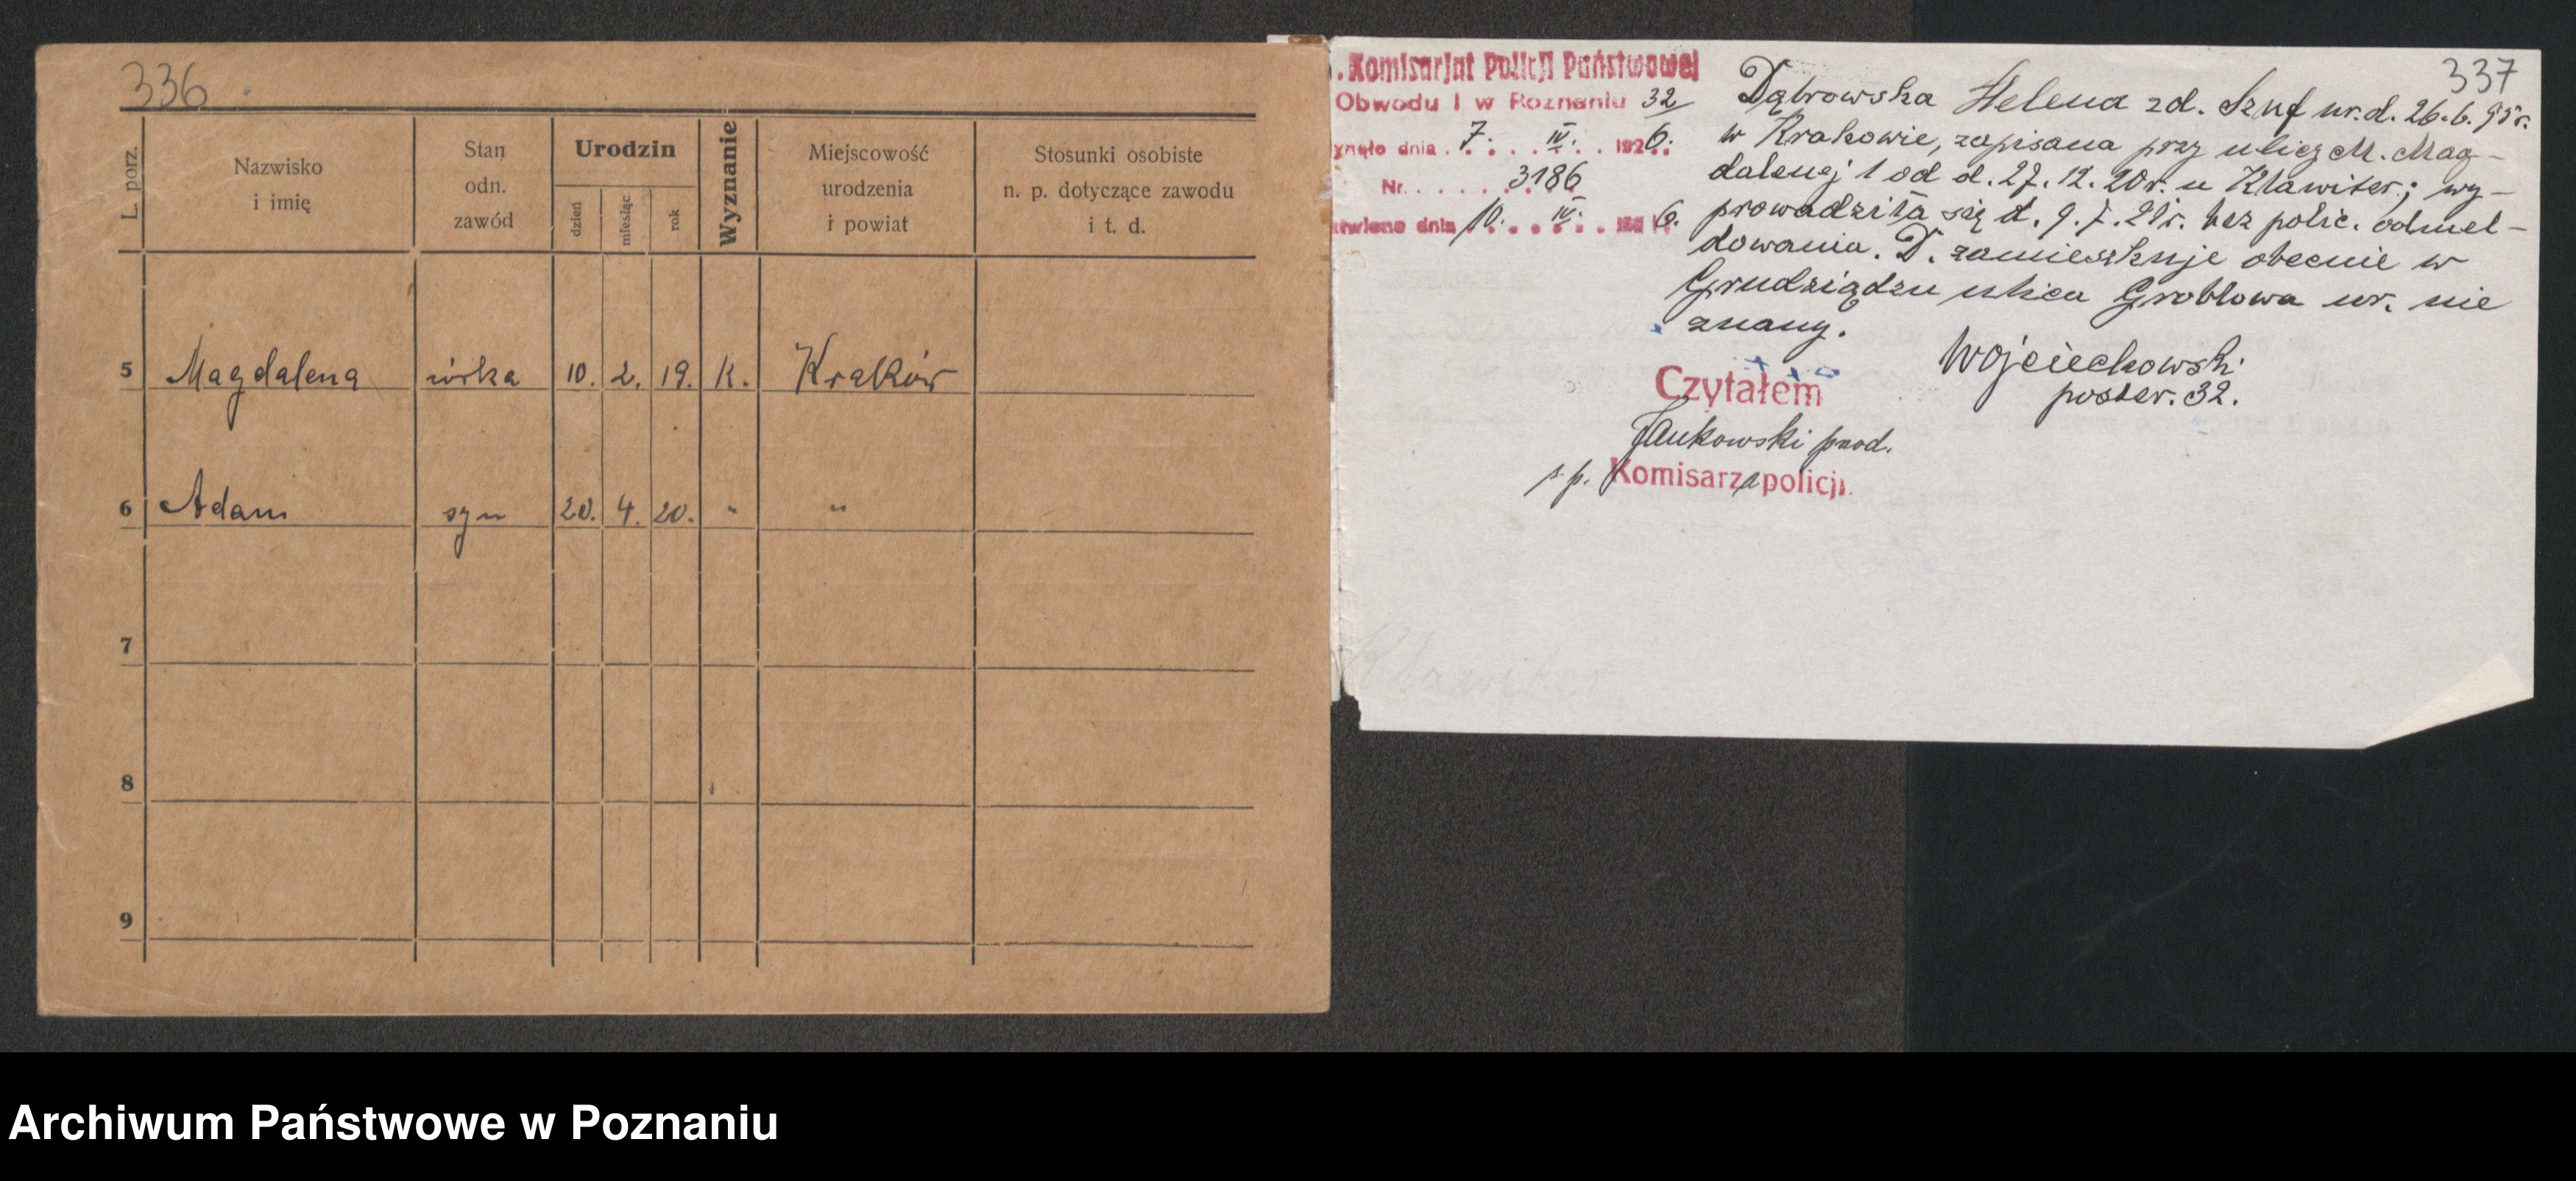 336
L. porz.
Nazwisko
i imię
Stan
odn.
zawód
Urodzin
dzień
miesiąc
rok
Wyznanie
Miejscowość
urodzenia
i powiat
Stosunki osobiste
n. p. dotyczące zawodu
i t. d.
5 Magdalena córka 10. 2. 19. k. Kraków
6 Adam syn 20. 4. 20. " "
7
8
9
. Komisarjat Policji Państwowej
Obwodu I w Poznaniu 32
dnia 7. IV. 1926.
Nr. 3186
dnia 10. IV. 6.
337
Dąbrowska Helena zd. ur. d. 26.6.95 r.
w Krakowie, zapisana przy ulicy M. Mag-
dalenej 1 od d. 27.12.20 r. u Klawiter; wy-
prowadziła się d. 9.7.21 r. bez polic. odmel-
dowania. D. zamieszkuje obecnie w
Grudziądzu ulica Groblowa nr. nie
znany.
Wojciechowski
poster. 32.
Czytałem
Jankowski przod.
s p. Komisarza policji.
Klawiter
Archiwum Państwowe w Poznaniu